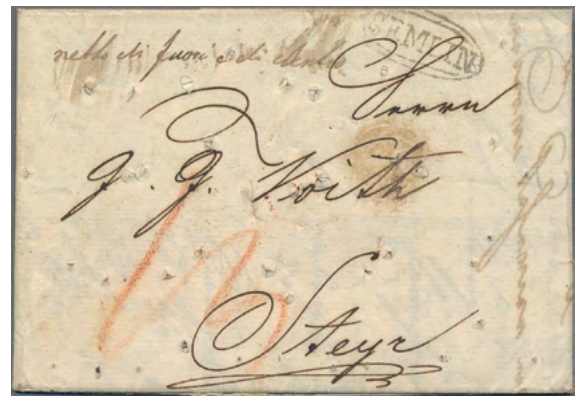 SEMLIN
netto di fuori e di dentro
Herrn
J. G. Voith
Steyr